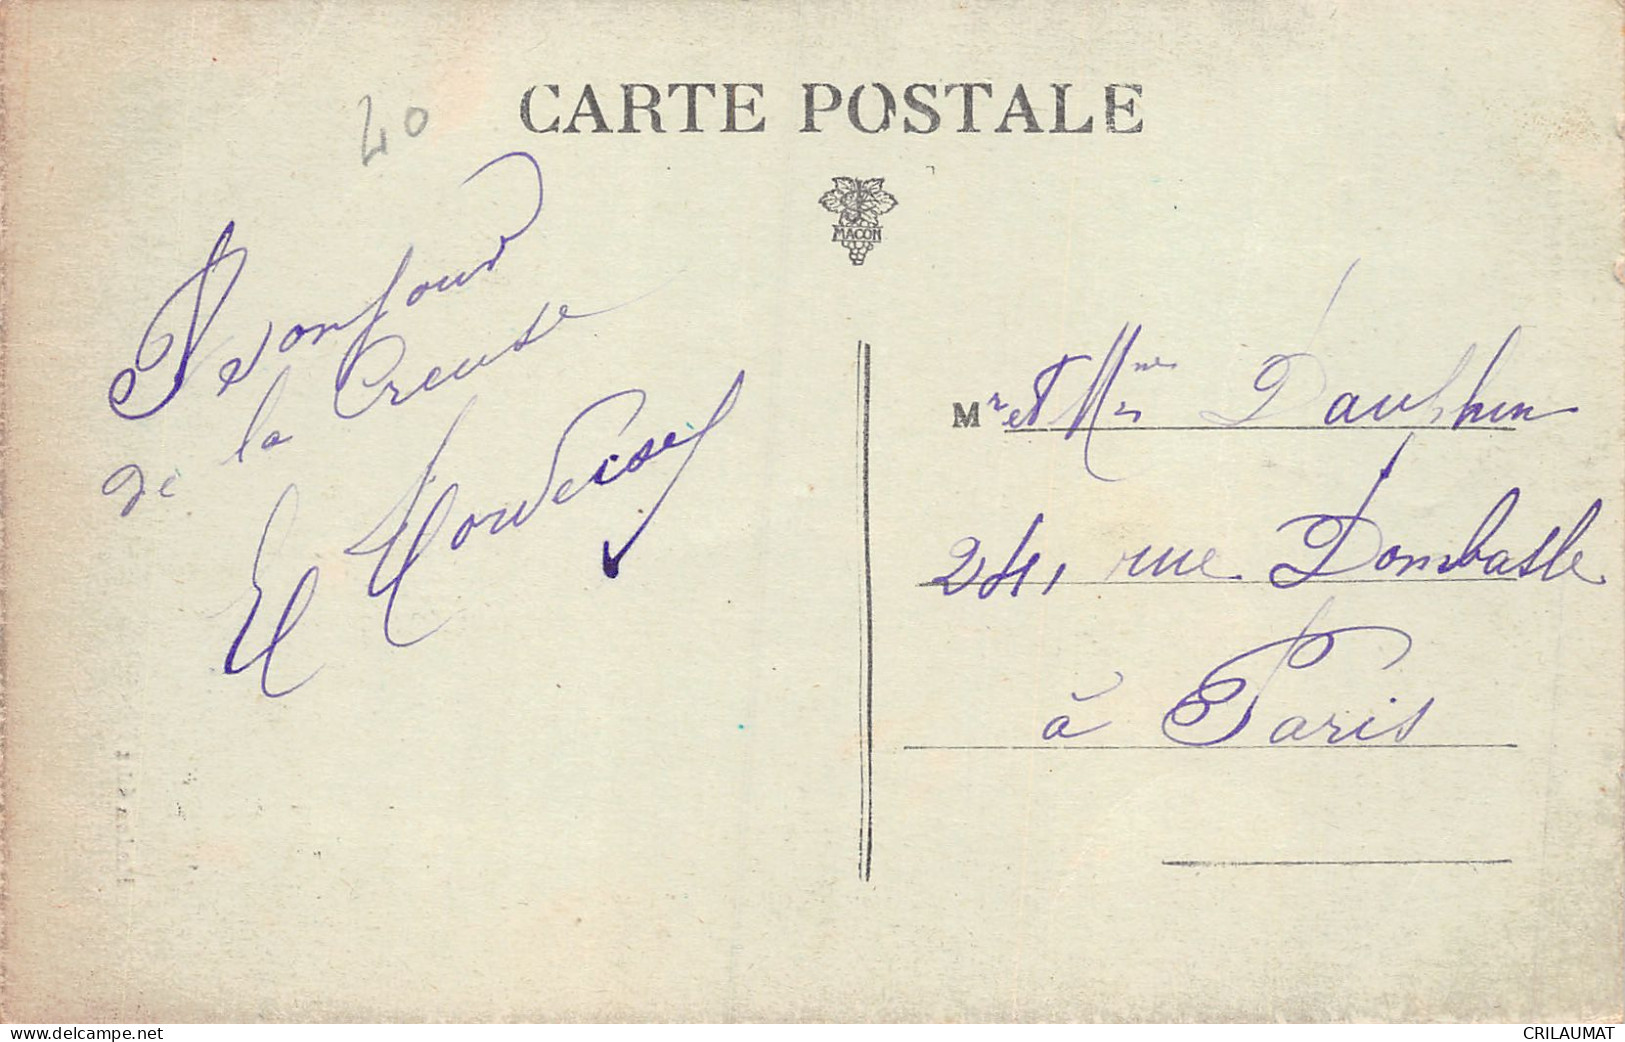 CARTE POSTALE
40
MACON
Bonjour
de la Creuse
Mr et Mme Dauphin
24, rue Dombasle
à Paris
www.delcampe.net
CRILAUMAT